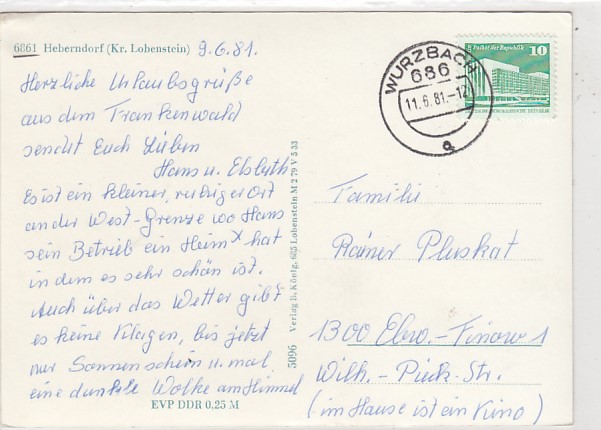 6861 Heberndorf (Kr. Lobenstein) 9.6.81.
Herzliche Urlaubsgrüße
aus dem Frankenwald
sendet Euch Lieben
Hans u. Elsbeth
Es ist ein kleiner, ruhiger ort
an der West-Grenze wo Hans
sein Betrieb ein Heim x hat
in dem es sehr schön ist.
Auch über das Wetter gibt
es keine Klagen, bis jetzt
nur Sonnenschein u. mal
eine dunkle Wolke am Himmel
EVP DDR 0,25 M
5096 Verlag R. König, 685 Lobenstein M 2 79 V 5 33
WURZBACH
686
11.6.81.-12
a
Palast der Republik 10
Familie
Rainer Pluskat
1300 Ebw.-Finow 1
Wilh.-Pieck-Str.
(im Hause ist ein Kino)